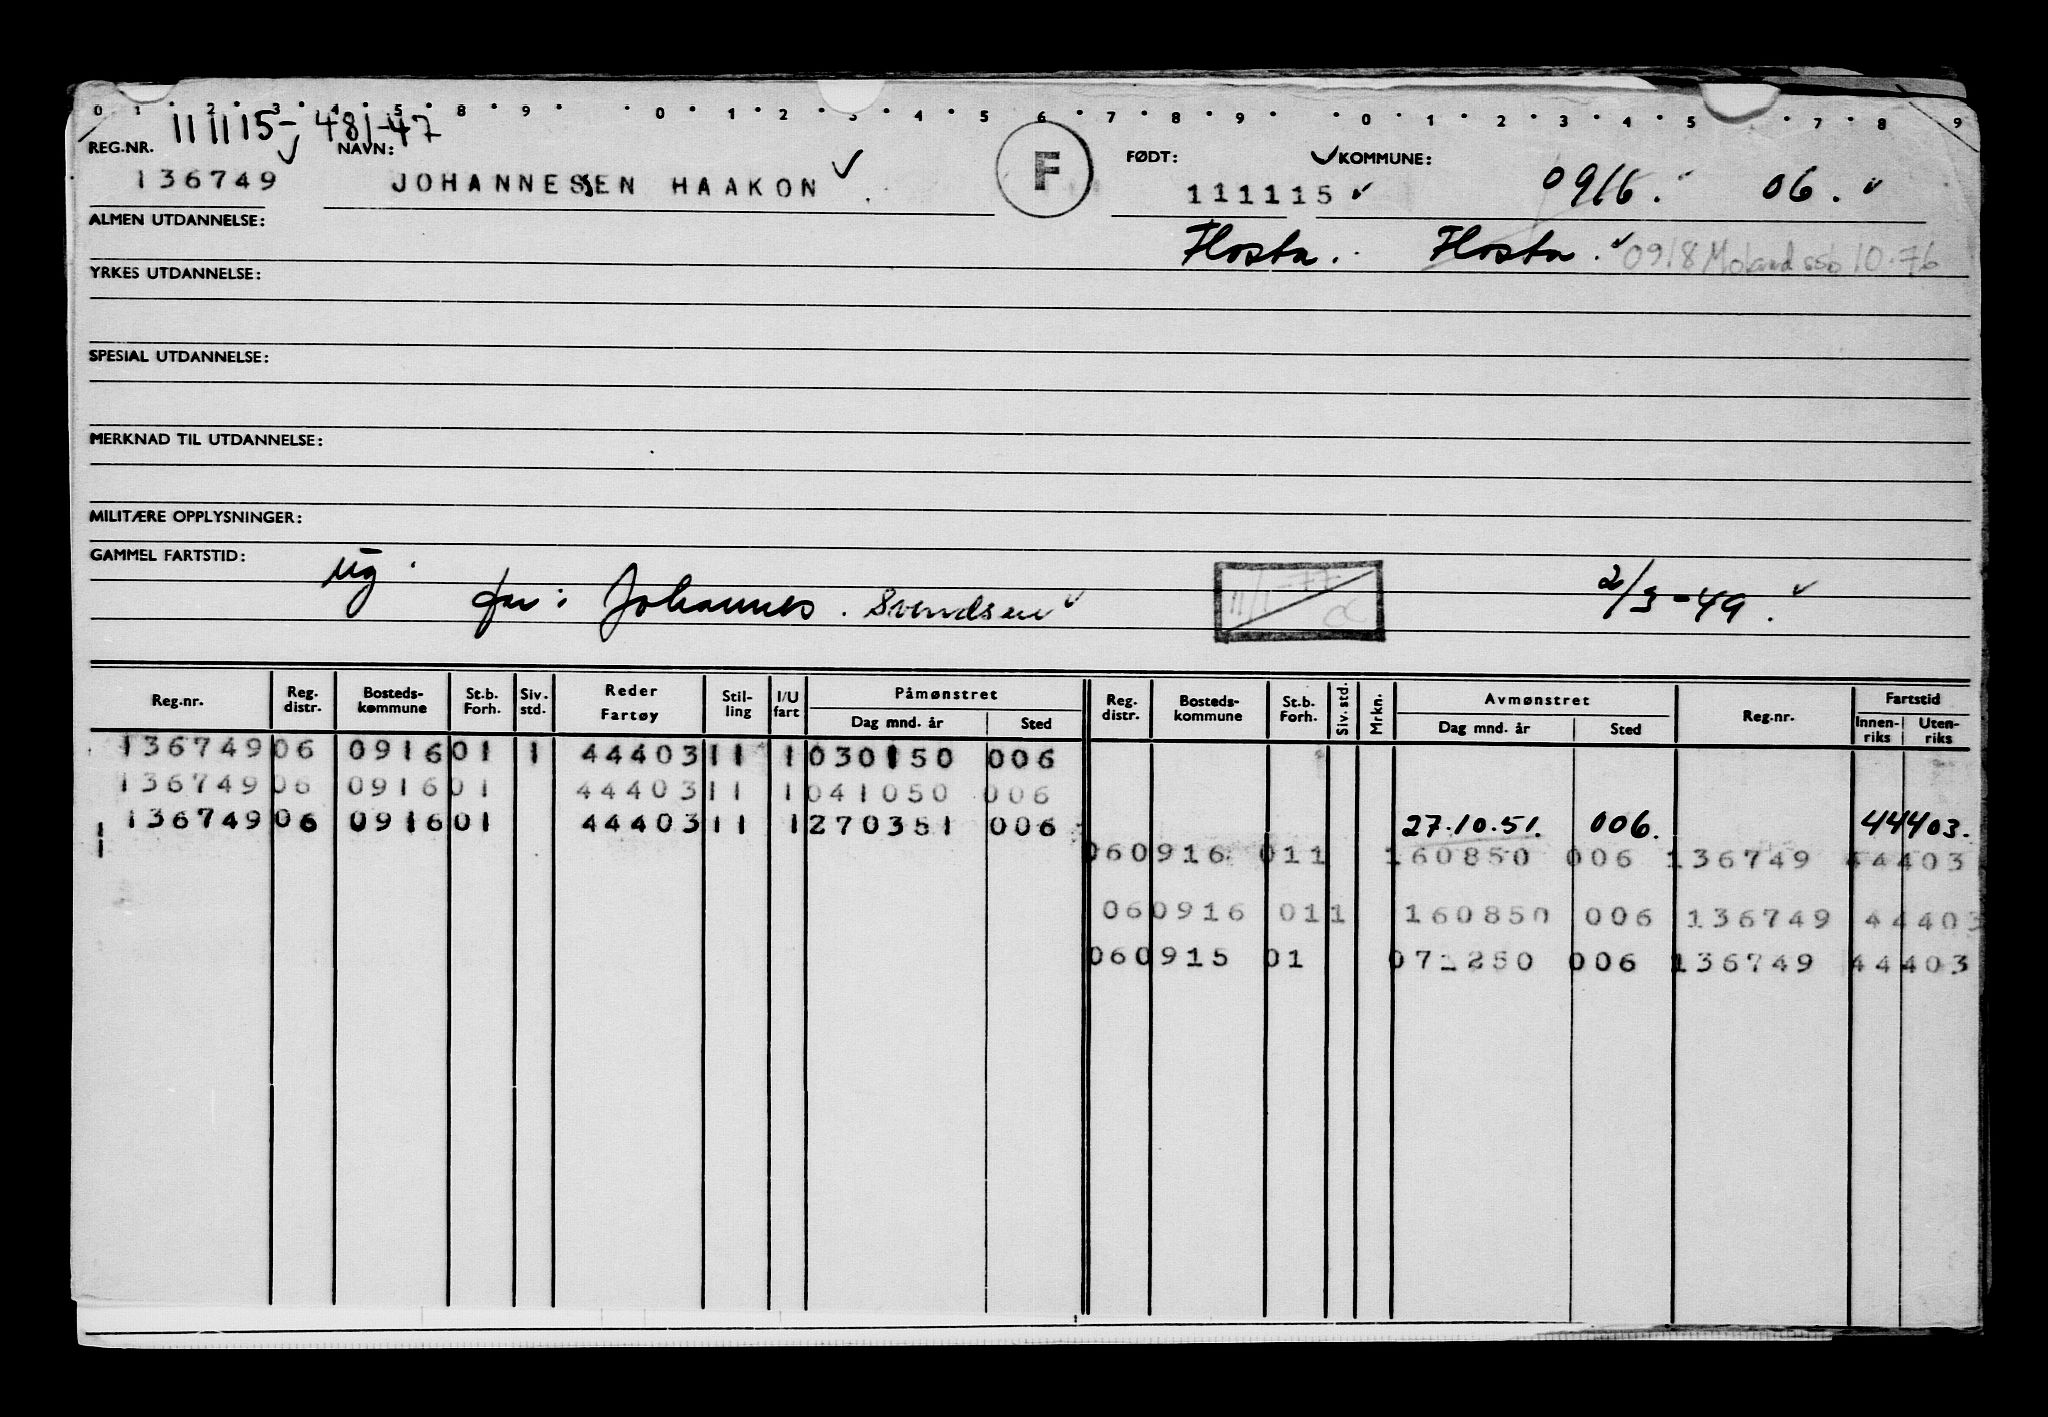 0 1 2 3 4 5 8 9 0 1 2 3 4 5 6 7 8 9 0 1 2 3 4 5 7 8 9
111115-, 481-47
REG.NR. NAVN: F FØDT: KOMMUNE:
136749 JOHANNESEN HAAKON 111115 0916. 06.
ALMEN UTDANNELSE: Flosta. Flosta. 0918 Moland ssb 10.76
YRKES UTDANNELSE:
SPESIAL UTDANNELSE:
MERKNAD TIL UTDANNELSE:
MILITÆRE OPPLYSNINGER:
GAMMEL FARTSTID: ug.
far: Johannes. Svendsen 11/1-77 2/3-49.
Reg.nr. Reg. distr. Bosteds-kommune St.b. Forh. Siv. std. Reder Fartøy Stil-ling I/U fart Påmønstret Dag mnd. år Sted Reg. distr. Bosteds-kommune St.b. Forh. Siv. std. Mrkn. Avmønstret Dag mnd. år Sted Reg.nr. Fartstid Innen-riks Uten-riks
136749 06 0916 01 1 44403 11 1 030150 006
136749 06 0916 01 44403 11 1 041050 006
136749 06 0916 01 44403 11 1 270351 006 27.10.51. 006. 44403.
060916 011 160850 006 136749 44403
060916 011 160850 006 136749 44403
060915 01 071250 006 136749 44403